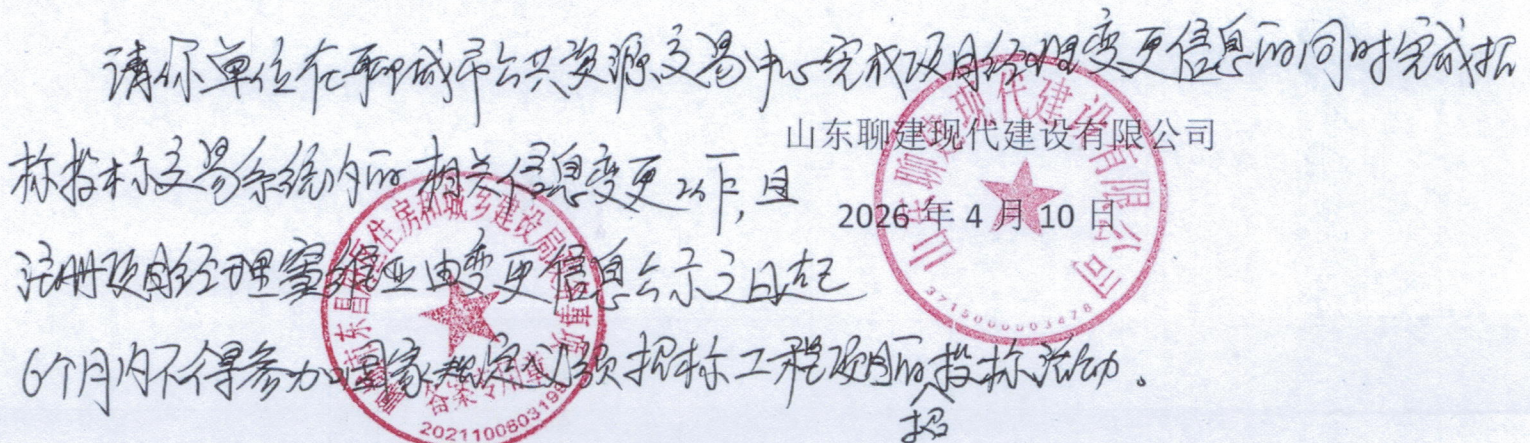 请你单位在聊城市公共资源交易中心完成项目经理变更信息的同时完成招
标投标交易系统内的相关信息变更工作，且
注册项目经理窦维亚由变更信息公示之日起
6个月内不得参加国家规定必须招标工程项目的招投标活动。
山东聊建现代建设有限公司
2026年4月10日
山东聊建现代建设有限公司
3715000003478
东昌府区住房和城乡建设局
备案专用章